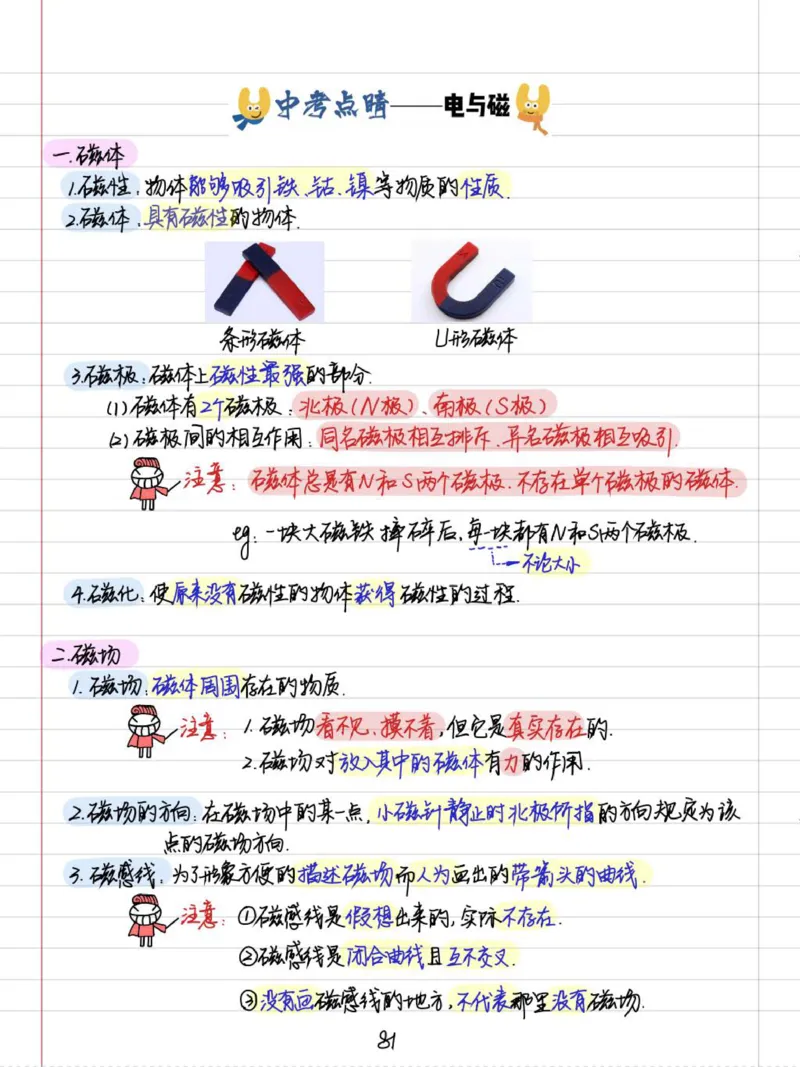 中考点晴——电与磁
一.磁体
1.磁性:物体能够吸引铁、钴、镍等物质的性质.
2.磁体:具有磁性的物体.
条形磁体 U形磁体
3.磁极:磁体上磁性最强的部分.
(1)磁体有2个磁极:北极(N极)、南极(S极)
(2)磁极间的相互作用:同名磁极相互排斥、异名磁极相互吸引.
注意:磁体总是有N和S两个磁极.不存在单个磁极的磁体.
eg:一块大磁铁摔碎后,每一块都有N和S两个磁极.
不论大小
4.磁化:使原来没有磁性的物体获得磁性的过程.
二.磁场
1.磁场:磁体周围存在的物质.
注意:1.磁场看不见、摸不着,但它是真实存在的.
2.磁场对放入其中的磁体有力的作用.
2.磁场的方向:在磁场中的某一点,小磁针静止时北极所指的方向规定为该
点的磁场方向.
3.磁感线:为了形象方便的描述磁场而人为画出的带箭头的曲线.
注意:①磁感线是假想出来的,实际不存在.
②磁感线是闭合曲线且互不交叉.
③没有画磁感线的地方,不代表那里没有磁场.
81